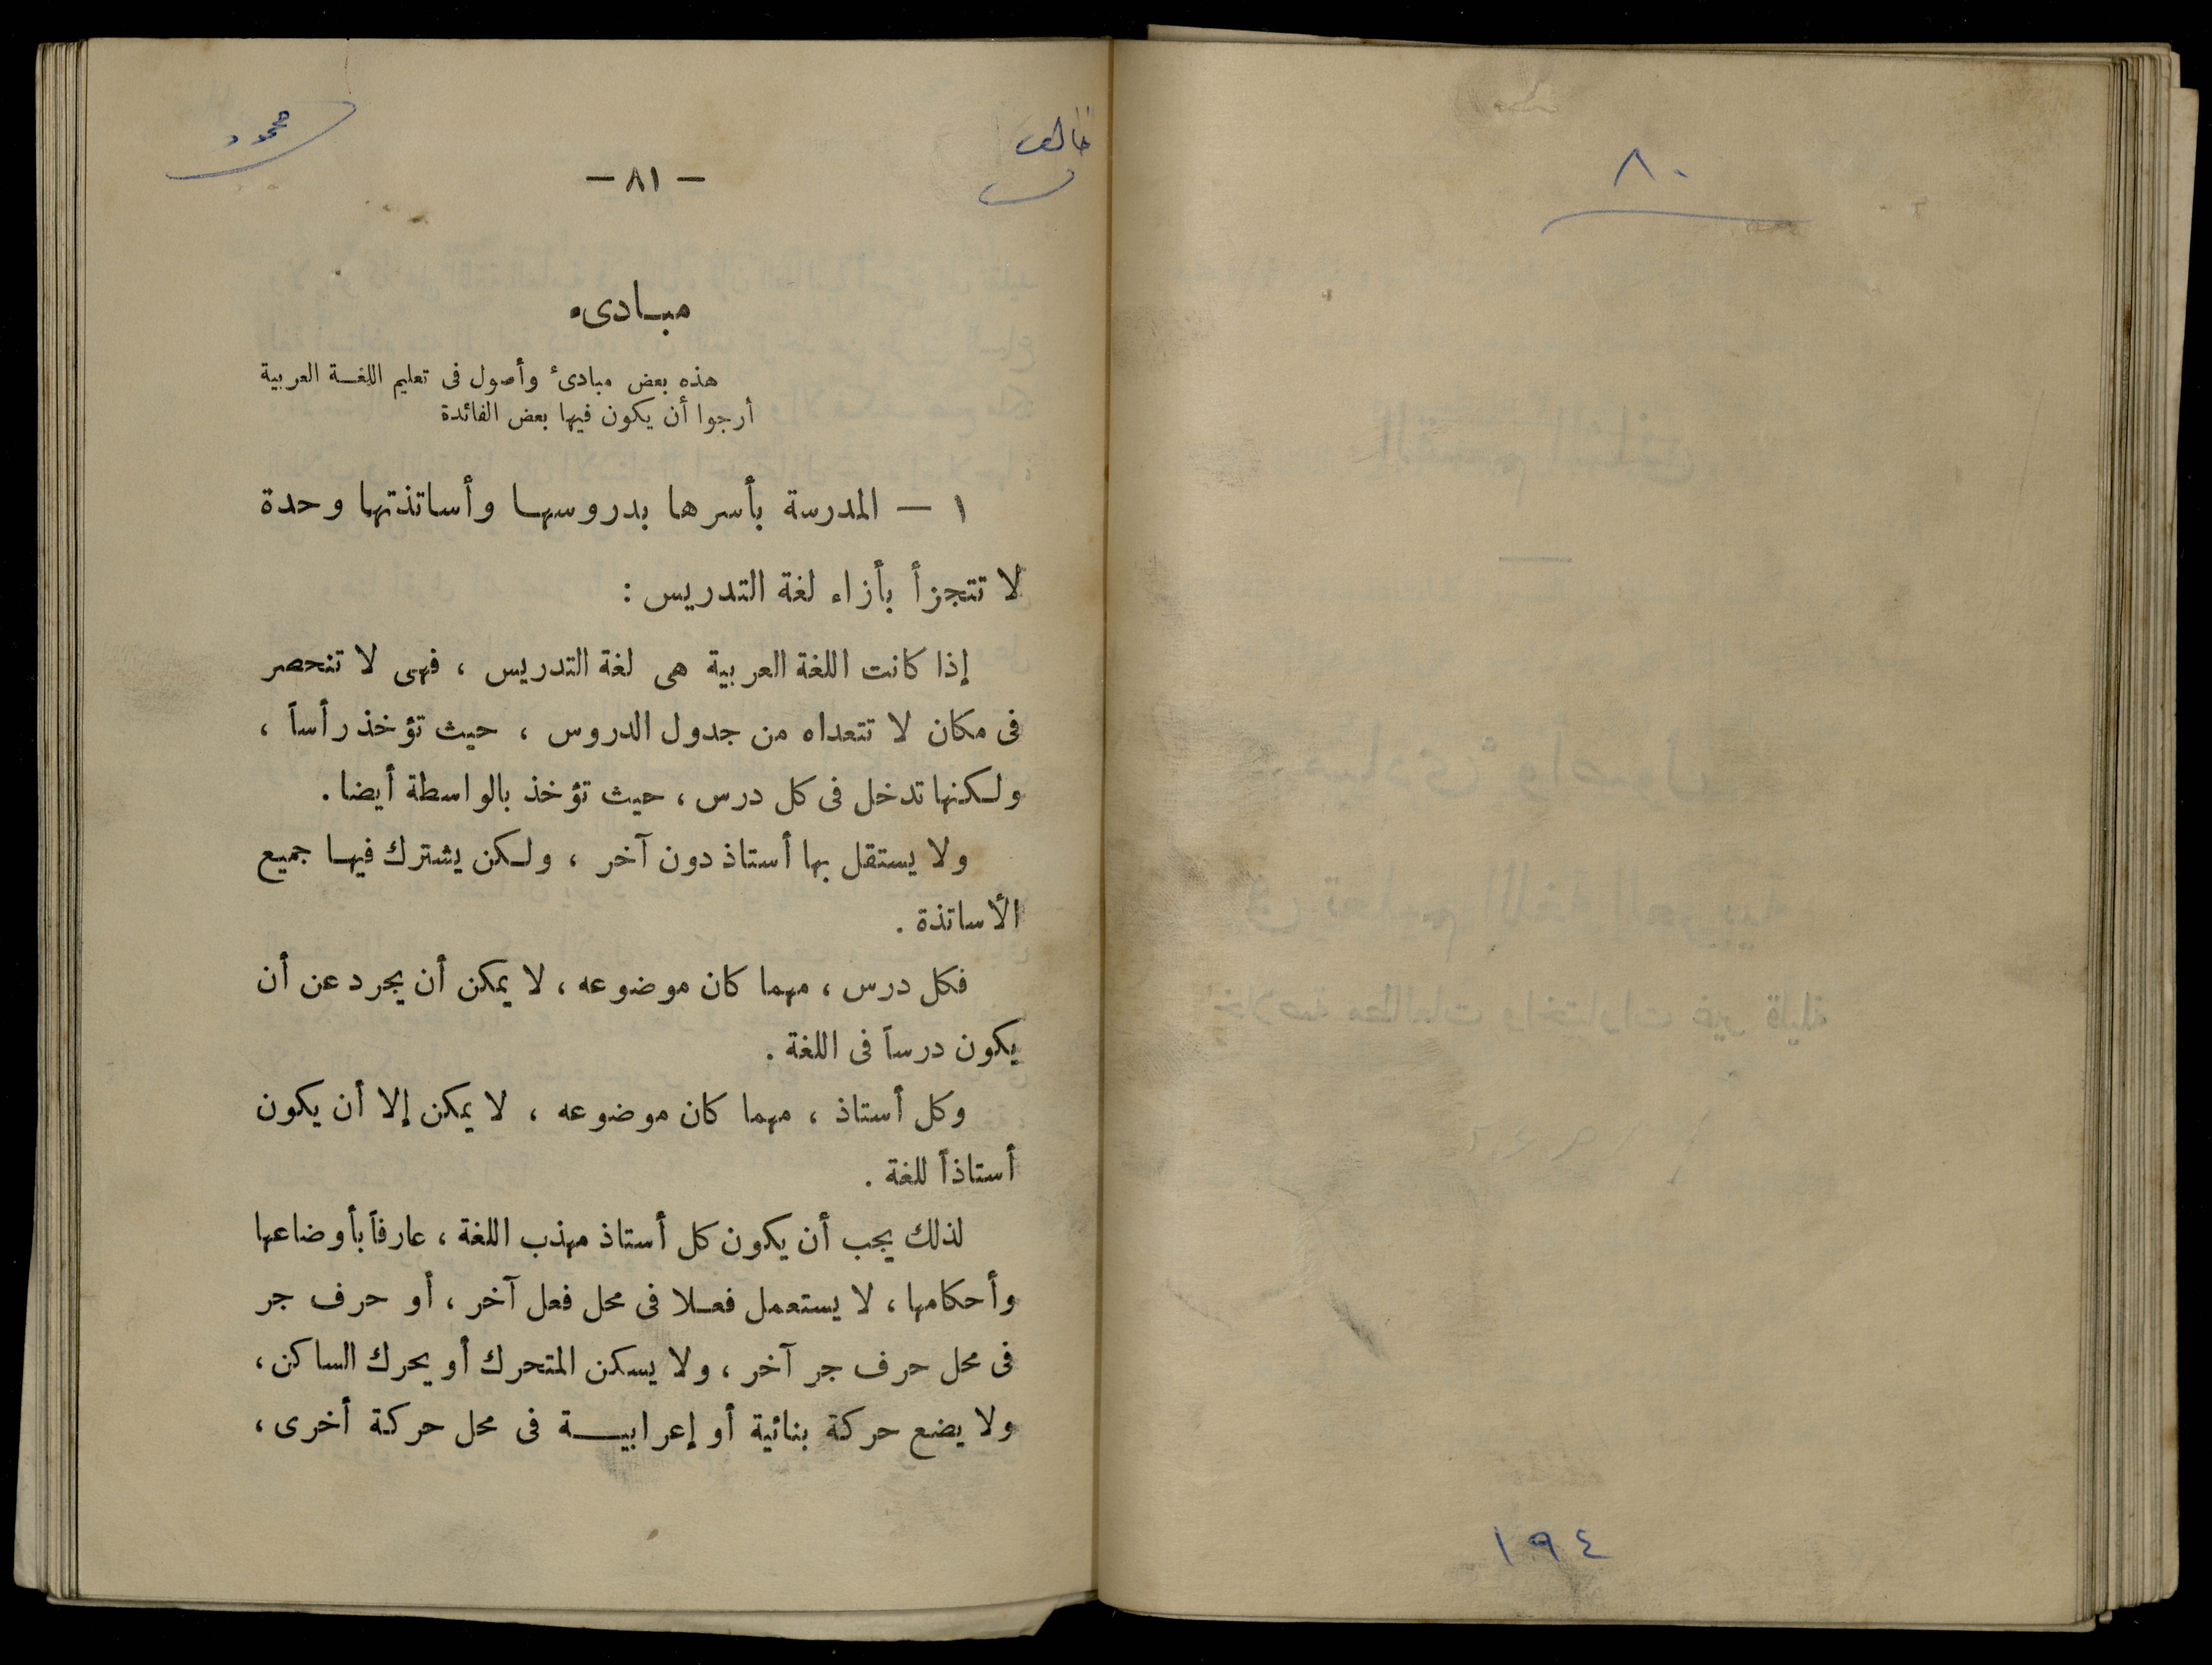 ٨٠
١٩٤
محمود
— ٨١ —
مبادىء
هذه بعض مبادىء وأصول فى تعليم اللغة العربية
أرجوا أن يكون فيها بعض الفائدة
١ — المدرسة بأسرها بدروسها وأساتذتها وحدة
لا تتجزأ بأزاء لغة التدريس :
إذا كانت اللغة العربية هى لغة التدريس ، فهى لا تنحصر
فى مكان لا تتعداه من جدول الدروس ، حيث تؤخذ رأساً ،
ولكنها تدخل فى كل درس ، حيث تؤخذ بالواسطة أيضا .
ولا يستقل بها أستاذ دون آخر ، ولكن يشترك فيها جميع
الأساتذة .
فكل درس ، مهما كان موضوعه ، لا يمكن أن يجرد عن أن
يكون درساً فى اللغة .
وكل أستاذ ، مهما كان موضوعه ، لا يمكن إلا أن يكون
أستاذاً للغة .
لذلك يجب أن يكون كل أستاذ مهذب اللغة ، عارفاً بأوضاعها
وأحكامها ، لا يستعمل فعلا فى محل فعل آخر ، أو حرف جر
فى محل حرف جر آخر ، ولا يسكن المتحرك أو يحرك الساكن ،
ولا يضع حركة بنائية أو إعرابية فى محل حركة أخرى ،